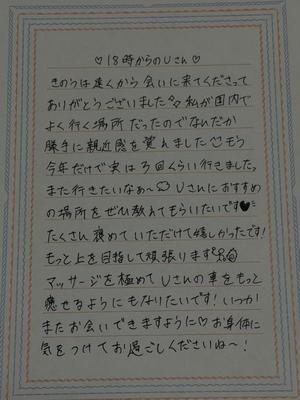 ♡18時からのUさん♡
きのうは遠くから会いに来てくださって
ありがとうございました 私が国内で
よく行く場所だったのでなんだか
勝手に親近感を覚えました もう
今年だけで実は3回くらい行きました。
また行きたいなぁ〜 Uさんにおすすめ
の場所をぜひ教えてもらいたいです♥
たくさん褒めていただけて嬉しかったです!
もっと上を目指して頑張ります
マッサージを極めてUさんの事をもっと
癒せるようにもなりたいです!いつか
またお会いできますように♡お身体に
気をつけてお過ごしくださいね〜!